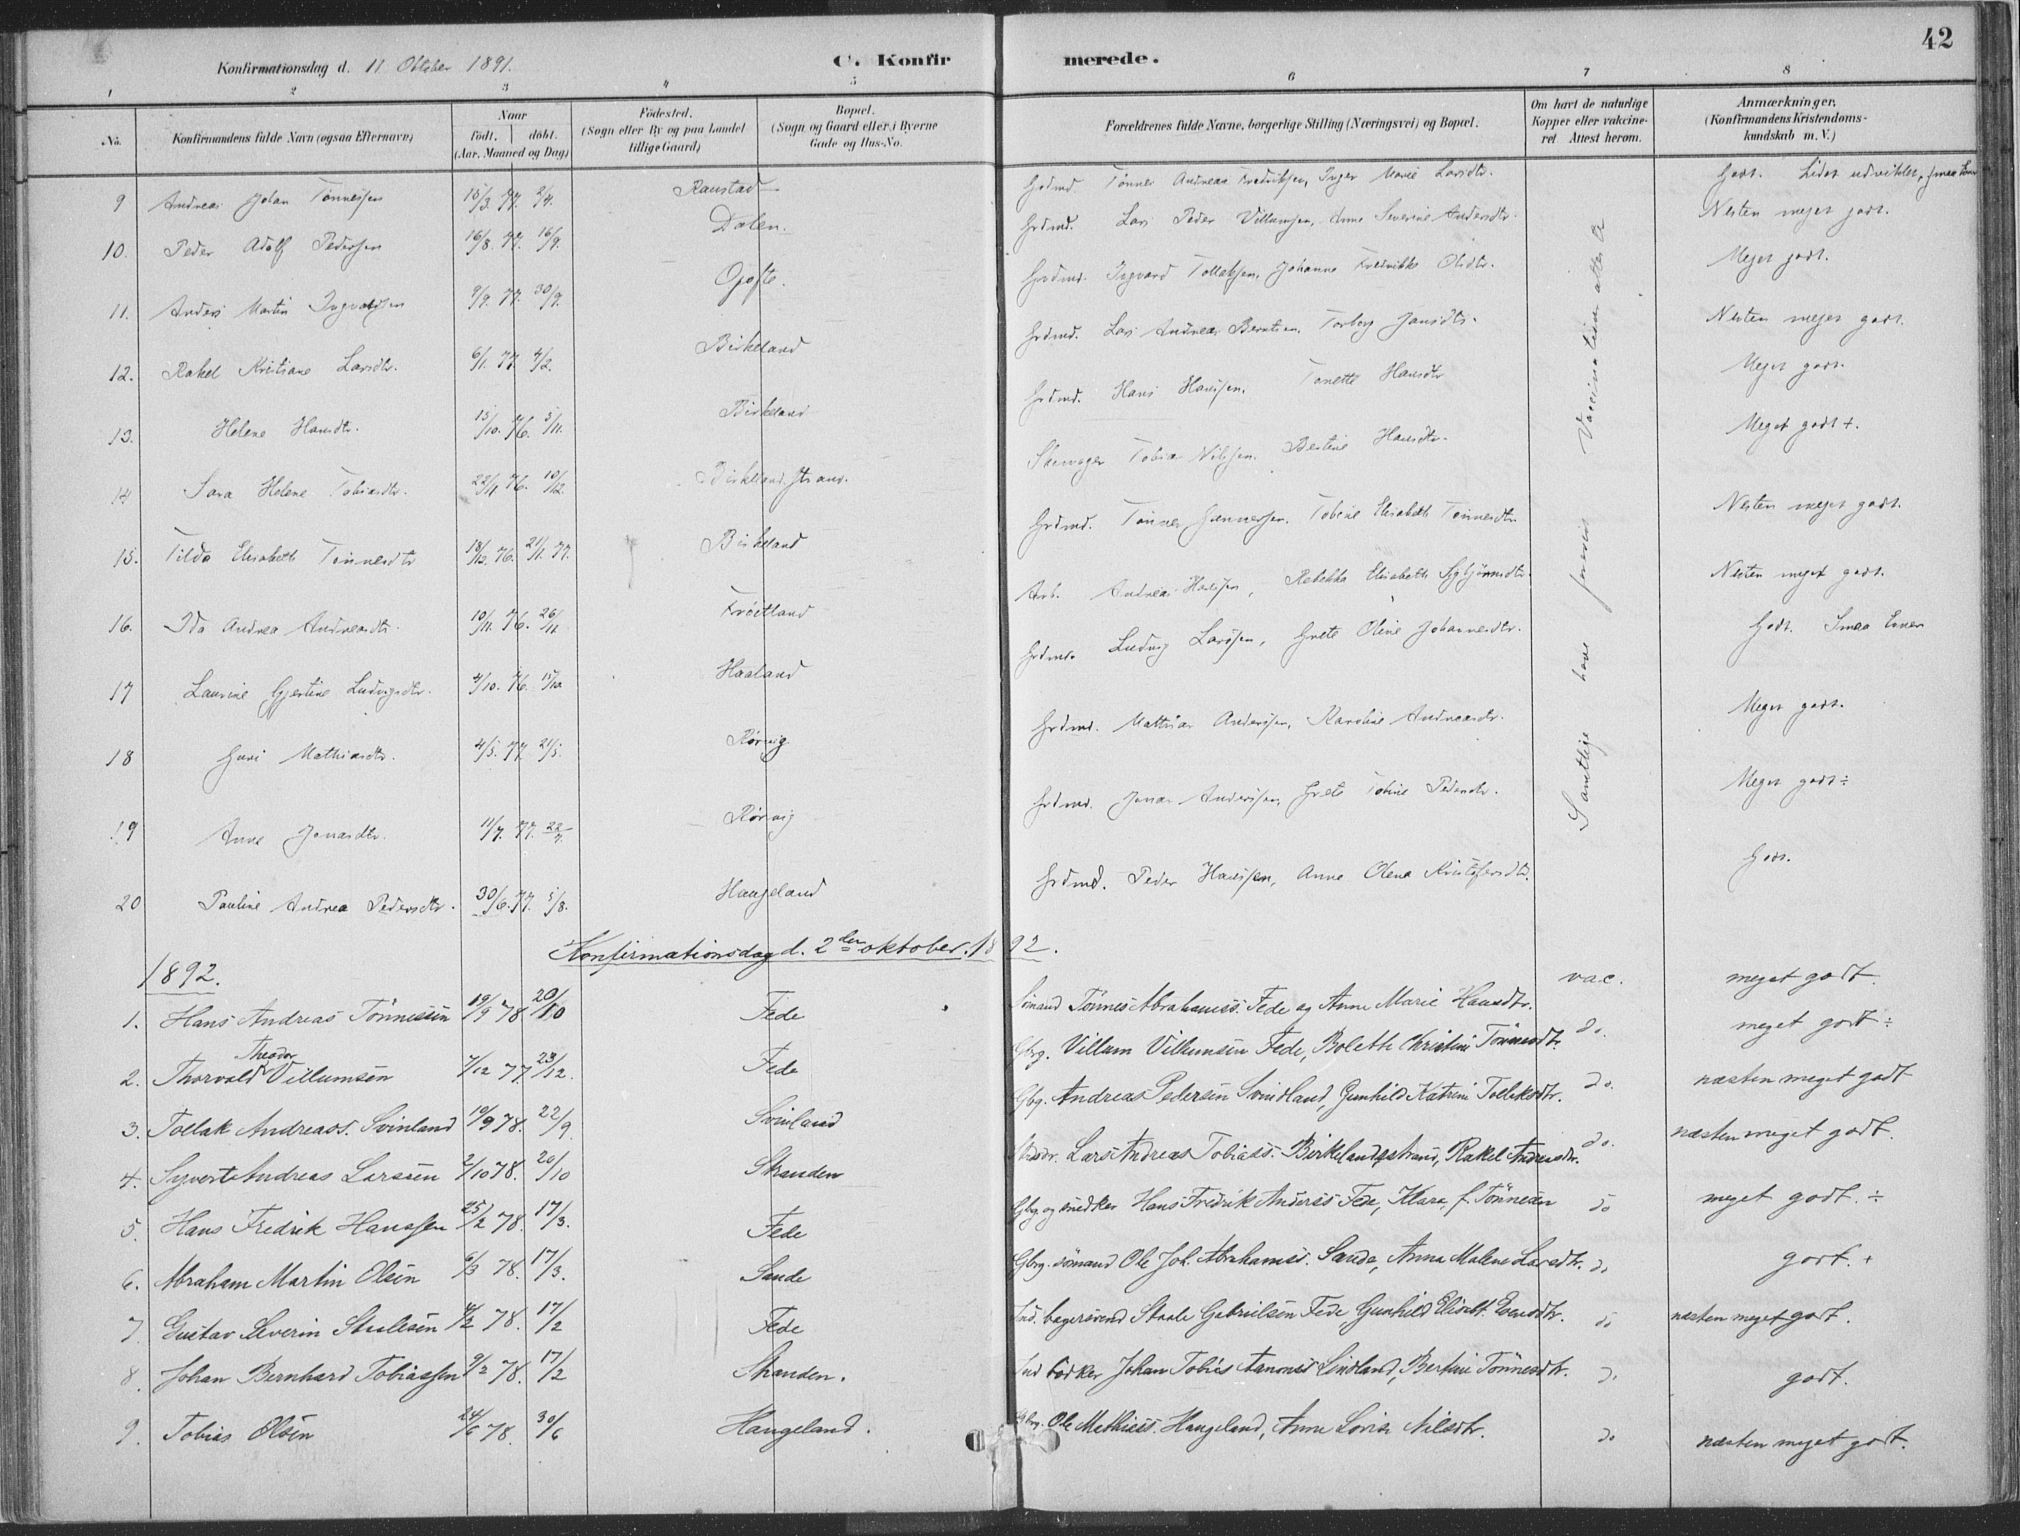 42
Konfirmationsdag d. 11 Oktober 1891.
C. Konfirmerede.
1 2 3 4 5 6 7 8
No.
Konfirmandens fulde Navn (ogsaa Efternavn)
Naar
født. døbt.
(Aar, Maaned og Dag)
Fødested.
(Sogn eller By og paa Landet
tillige Gaard)
Bopæl.
(Sogn og Gaard eller i Byerne
Gade og Hus-No.
Forældrenes fulde Navne, borgerlige Stilling (Næringsvei) og Bopæl.
Om havt de naturlige
Kopper eller vakcine-
ret Attest herom.
Anmærkninger.
(Konfirmandens Kristendoms-
kundskab m. V.)
9 Andreas Johan Tønnessen 15/3. 77. 2/4. Raustad Grdmd. Tønnes Andreas Fredriksen, Inger Marie Larsdtr. Godt. Lidet udviklet, smaa
10. Peder Adolf Pedersen 16/8. 77. 16/9. Dalen. Grdmd. Lars Peder Villumsen, Anne Severine Andersdtr. Nesten meget godt.
11. Anders Martin Ingvaldsen 9/9. 77. 30/9. Opofte. Grdmd. Ingvard Tollaksen, Johanne Fredrikke Olsdtr. Meget godt.
12. Rakel Kristiane Larsdtr. 6/1. 77. 4/2. Birkeland Grdmd. Lars Andreas Berntsen, Torborg Jansdtr. Nesten meget godt.
13. Helene Hansdtr. 15/10. 76. 5/11. Birkeland Grdmd. Hans Hansen. Tonette Hansdtr Meget godt.
14 Sara Helene Tobiasdtr. 22/11 76. 10/12. Birkeland strand. Skomager Tobias Nilsen. Bertine Hansdtr. Meget godt +.
15. Tilda Elisabeth Tønnesdtr 18/12. 76. 21/1. 77. Birkeland Grdmd. Tønnes Gunnersen. Tobine Elisabeth Tønnesdtr. Nesten meget godt.
16. Ida Andrea Andreasdtr. 10/11. 76. 26/11. Frøitland Arb. Andreas Hansen, Rebekka Elisabeth Sigbjørnsdtr. Nesten meget godt.
17 Laurine Gjertine Ludvigsdtr. 4/10. 76. 15/10 Haaland Grdmd. Ludvig Larsen, Grete Oline Johannesdtr. Godt. Smaa Evner
18 Guri Mathiasdtr. 4/5. 77. 21/5. Rørvig Grdmd. Mathias Andersen, Karoline Andreasdtr. Meget godt.
19 Anne Jonasdtr. 11/7. 77. 22/7. Rørvig Grdmd. Jonas Andersen, Grete Tobine Pedersdtr. Meget godt ÷
20 Pauline Andrea Pedersdtr. 30/6. 77. 5/8. Haugeland Grdmd. Peder Hansen, Anne Olena Kristofersdtr. Godt.
Samtlige have foreviist Vaccinationsattester
Konfirmationsdag d. 2den oktober. 1892.
1892.
1. Hans Andreas Tönnessen 19/9 78. 20/10 Fede Sömand Tönnes Abrahamss. Fede og Anne Marie Hansdtr. vac. meget godt.
2. Thorvald Theodor Villumsen 7/12 77. 23/12. Fede Gbrg. Villum Villumsen Fede, Boleth Christine Tönnesdtr. do. meget godt ÷
3. Tollak Andreass. Svinland 19/9 78. 22/9. Svinland Gbg. Andreas Pedersen Svindland, Gunhild Katrine Tollaksdtr. do. næsten meget godt
4. Syvert Andreas Larssen 2/10 78. 20/10 Stranden Lars Andreas Tobiass. Birkelandsstrand, Rakel Andersdtr. do. næsten meget godt.
5. Hans Fredrik Hanssen 25/2 78. 17/3. Fede Gbg. og snedker Hans Fredrik Anderss Fede, Klara f. Tönnesen do meget godt. ÷
6. Abraham Martin Olsen 6/3 78. 17/3. Sande Gbrg. sömand Ole Joh. Abrahamss. Sande, Anna Malene Larsdtr. do godt. +
7 Gustav Severin Staalesen 4/2 78. 17/2 Fede Ind. bagersvend Staale Gabrielsen Fede Gunhild Elisabt. Evensdtr. do næsten meget godt.
8. Johan Bernhard Tobiassen 9/2 78. 17/2 Stranden. Ind bödker Johan Tobias Aanonss Lindland, Bertine Tönnesdtr. do godt.
9. Tobias Olsen 24/6 78. 30/6 Haugeland. Gbrg. Ole Mathiass. Haugeland, Anne Lovise Nilsdtr. do næsten meget godt.